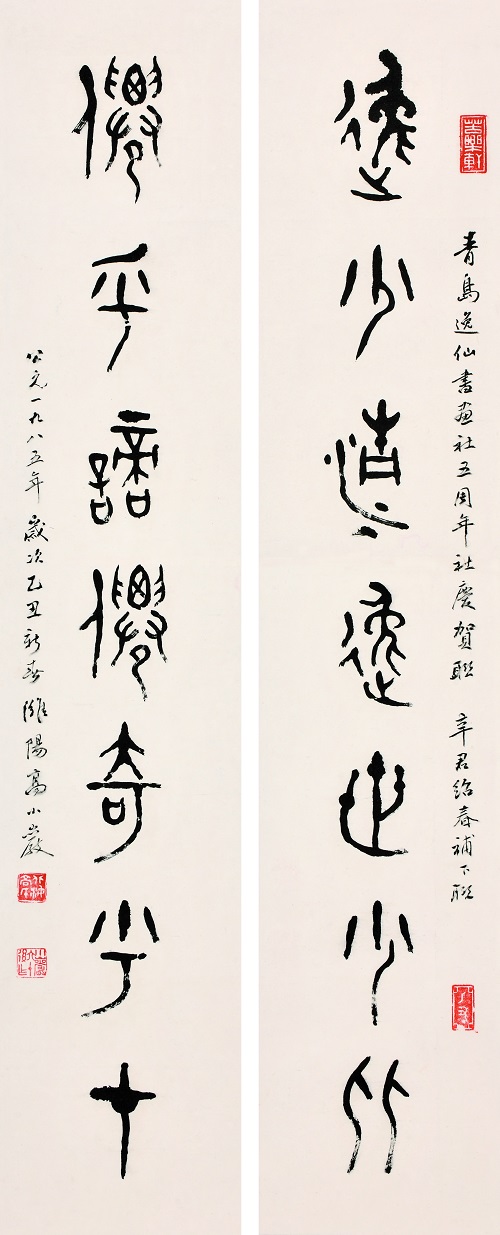 逸少造逸世少比
青島逸仙書畫社五周年社慶賀聯 辛君紹春補下聯
僊乎諦僊奇乎才
公元一九八五年歲次乙丑新春濰陽高小巖